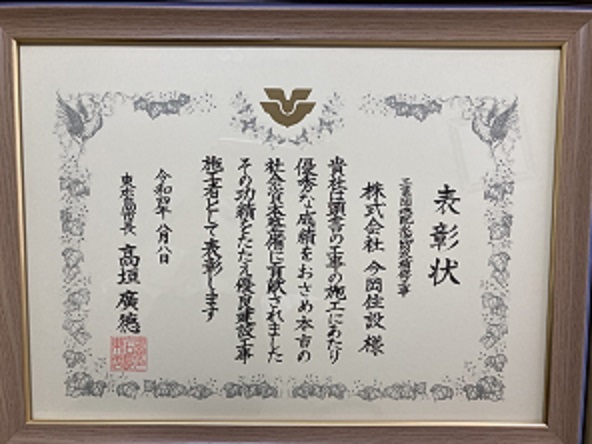 表彰状
株式会社 今岡住設 様
貴社は頭書の工事の施工にあたり
優秀な成績をおさめ本市の
社会資本整備に貢献されました
その功績をたたえ優良建設工事
施工者として表彰します
令和四年 八月八日
東広島市長 高垣 廣徳